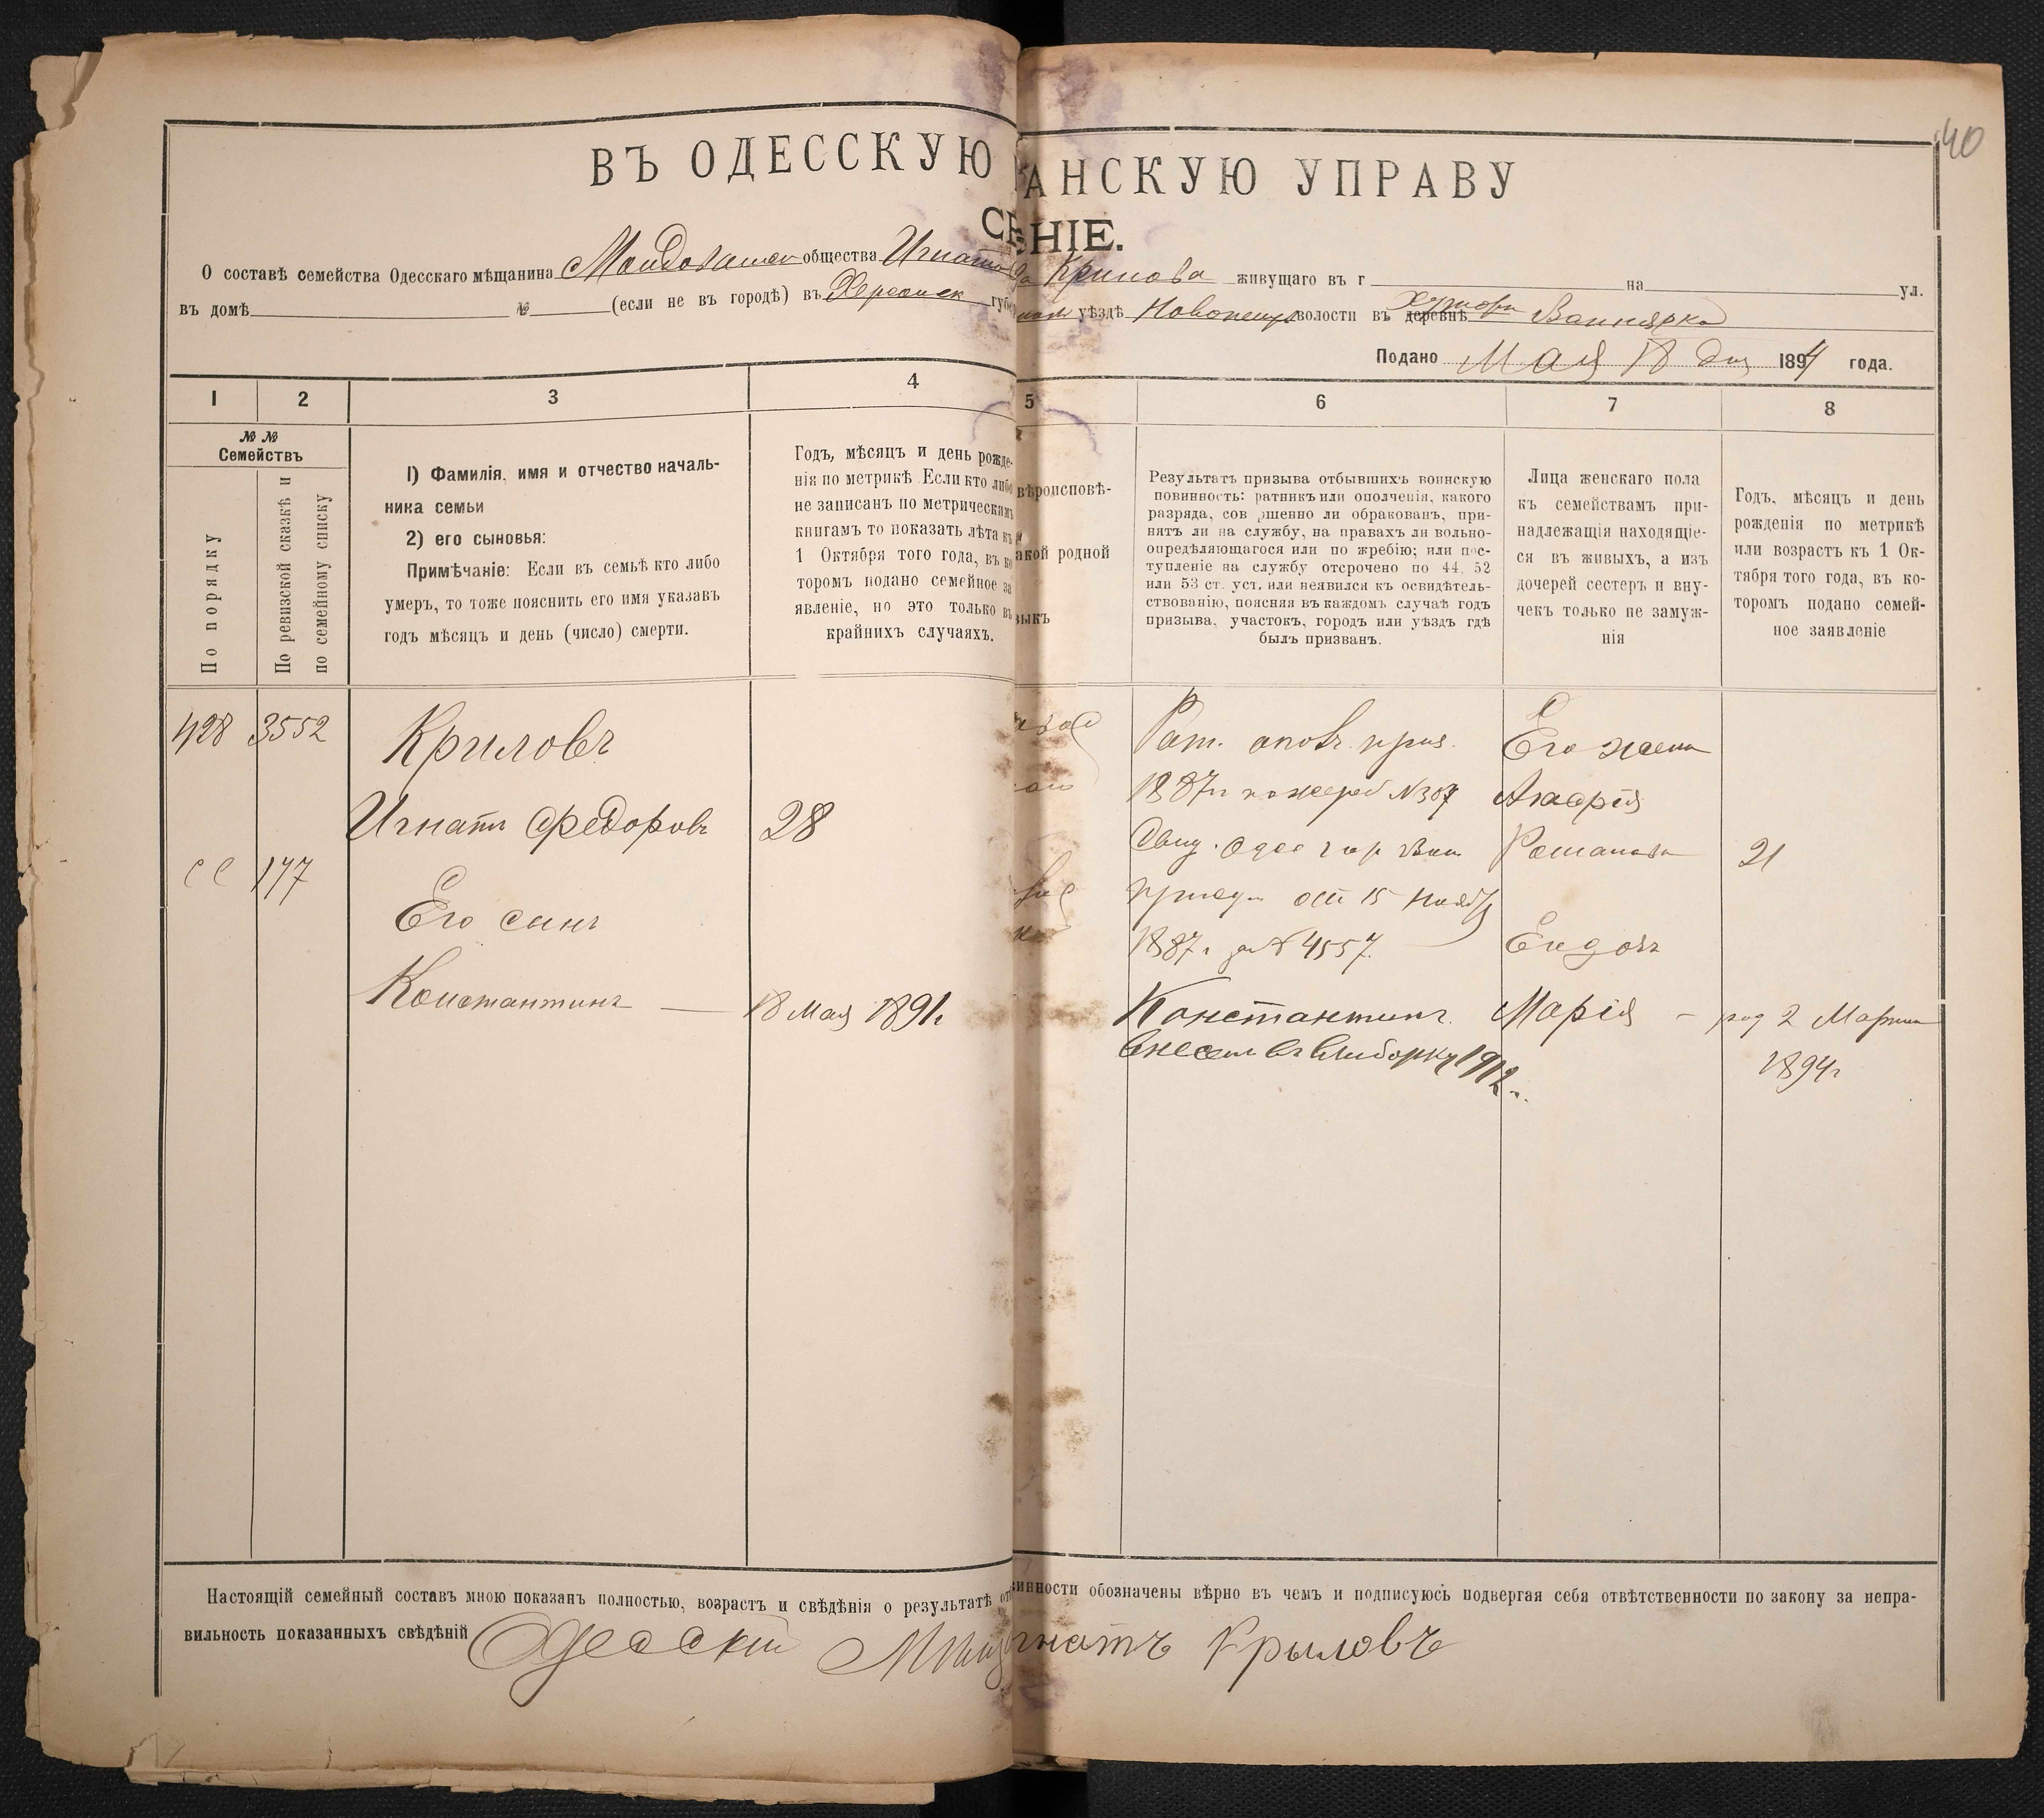 40
ВЪ ОДЕССКУЮ АНСКУЮ УПРАВУ
НІЕ.
О составѣ семейства Одесскаго мѣщанина общества Крилова живущаго въ г на ул.
въ домѣ № (если не въ городѣ) въ Херсонск уѣздѣ волости въ деревнѣ хуторѣ
Подано Мая 18 дня 1894 года.
1 2 3 4 5 6 7 8
№ №
Семействъ
По порядку
По ревизской сказкѣ и
по семейному списку
1) Фамилія, имя и отчество началь-
ника семьи
2) его сыновья:
Примѣчаніе: Если въ семьѣ кто либо
умеръ, то тоже пояснить его имя указавъ
годъ мѣсяцъ и день (число) смерти.
Годъ, мѣсяцъ и день рожде-
нія по метрикѣ Если кто либо
не записанъ по метрическимъ
книгамъ то показать лѣта къ
1 Октября того года, въ ко
торомъ подано семейное за
явленіе, но это только въ
крайнихъ случаяхъ.
вѣроисповѣ-
акой родной
зыкъ
Результатъ призыва отбывшихъ воинскую
повинность: ратникъ или ополченія, какого
разряда, совершенно ли обракованъ, при-
нятъ ли на службу, на правахъ ли вольно-
опредѣляющагося или по жребію; или пос-
тупленіе на службу отсрочено по 44, 52
или 53 ст. уст. или неявился къ освидѣтель-
ствованію, поясняя въ каждомъ случаѣ годъ
призыва, участокъ, городъ или уѣздъ гдѣ
былъ призванъ.
Лица женскаго пола
къ семействамъ при-
надлежащія находящіе-
ся въ живыхъ, а изъ
дочерей сестеръ и вну-
чекъ только не замуж-
нія
Годъ, мѣсяцъ и день
рожденія по метрикѣ
или возрастъ къ 1 Ок-
тября того года, въ ко-
торомъ подано семей-
ное заявленіе
428 3552 Криловъ
Игнатъ Федоровъ 28
177
Его сынъ
Константинъ — 18 Мая 1891г
Рат. опол. приз.
1887г по жереб №307
Свид. Одес гор Воин
присут от 15 Нояб
1887г за № 4557.
Константинъ
внесенъ въ выборку 1912г.
Его жена
Романова 21
Его дочь
Марія — род 2 Марта
1894г
Настоящій семейный составъ мною показанъ полностью, возрастъ и свѣдѣнія о результатѣ от инности обозначены вѣрно въ чемъ и подписуюсь подвергая себя отвѣтственности по закону за непра-
вильность показанныхъ свѣдѣній Одесскій гнатъ Крыловъ